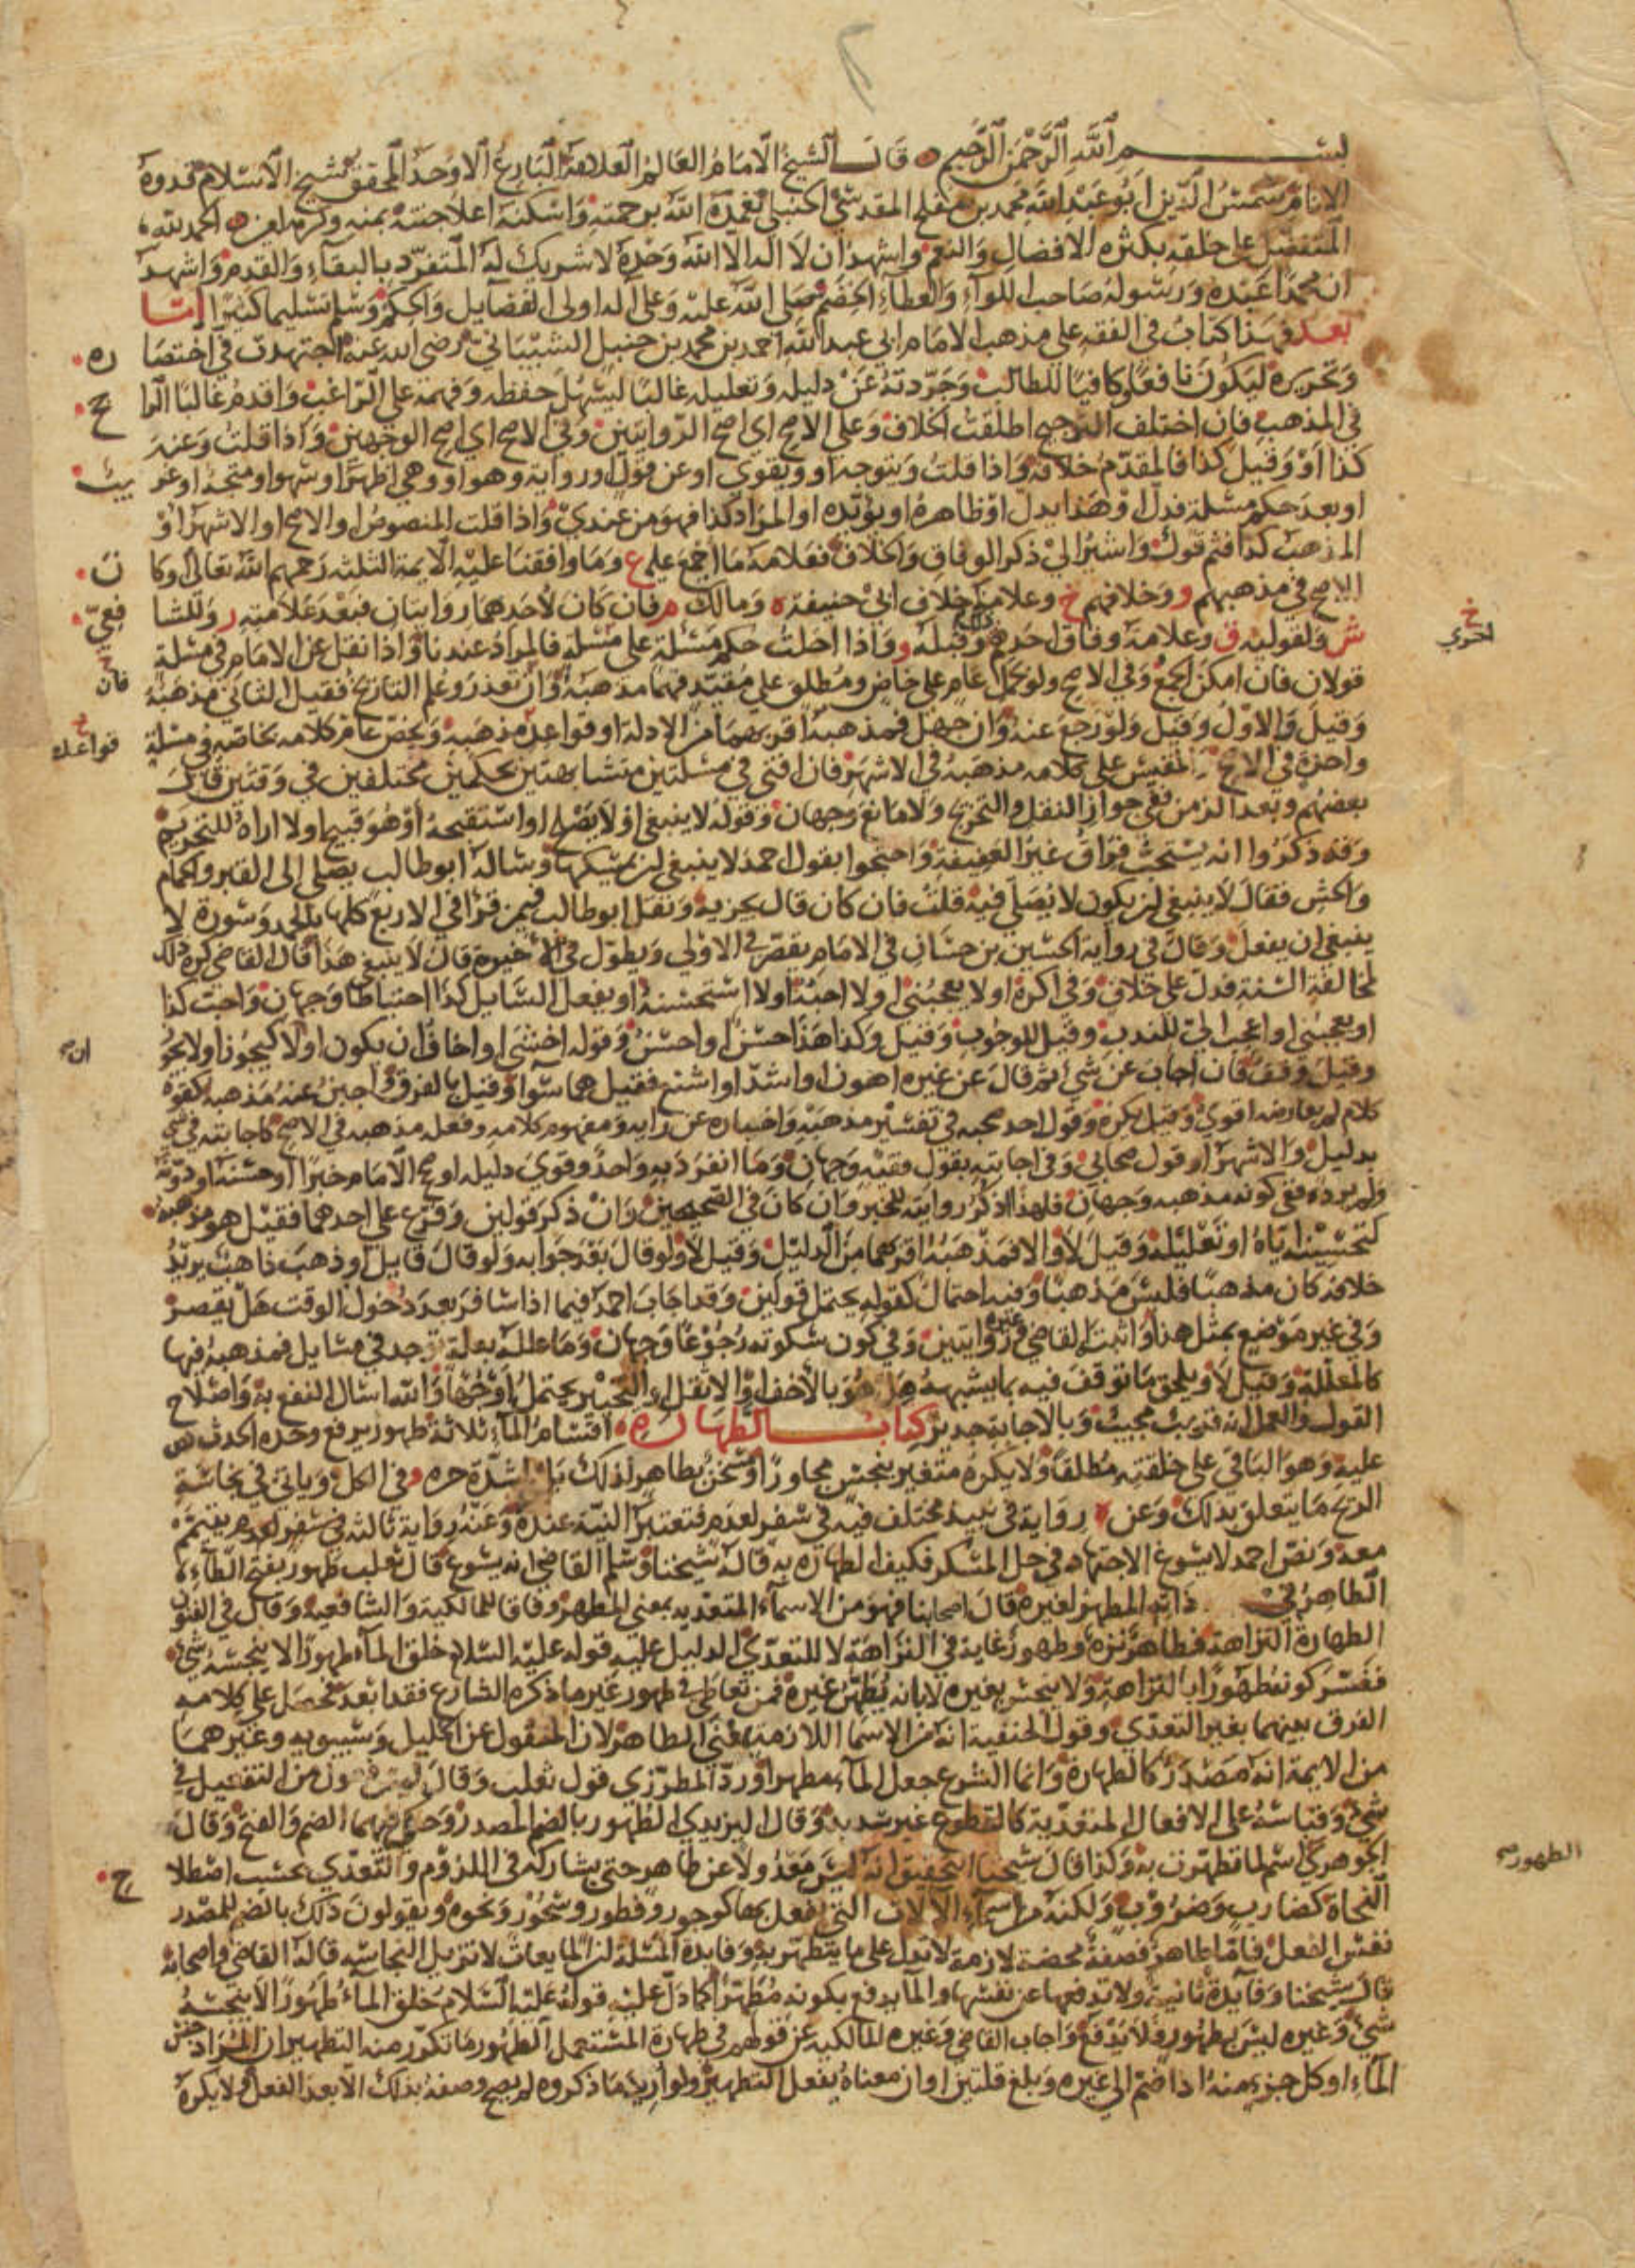 بسم الله الرحمن الرحيم قال الشيخ الامام العالم العلامة البارع الاوحد المحقق شيخ الاسلام قدوة
الانام شمس الدين ابو عبد الله محمد بن مفلح المقدسي الحنبلي تغمده الله برحمته واسكنه اعلا جنته بمنه وكرمه امين الحمد لله
المتفضل على خلقه بكثرة الافضال والنعم واشهد ان لا اله الا الله وحده لا شريك له المتفرد بالبقاء والقدم واشهد
ان محمدا عبده ورسوله صاحب اللواء والعطاء الخضم صلى الله عليه وعلى اله اولى الفضايل والحكم وسلم تسليما كثيرا اما
بعد فهذا كتاب في الفقه على مذهب الامام ابي عبد الله احمد بن محمد بن حنبل الشيباني رضي الله عنه اجتهدت في اختصا ره
وتحريره ليكون نافعا وكافيا للطالب وجردته عن دليله وتعليله غالبا ليسهل حفظه وفهمه على الراغب واقدم غالبا الرا جح
في المذهب فان اختلف الترجيح اطلقت الخلاف وعلى الاصح اي اصح الروايتين وفي الاصح اي اصح الوجهين واذا قلت وعنه
كذا او وقيل كذا فالمقدم خلافه واذا قلت ويتوجه او ويقوى او عن قول او رواية وهو او وهي اظهر او اشهر او متجه او غر يب
او بعد حكم مسئلة فدل او هذا يدل او ظاهره او يؤيده او المراد كذا فهو من عندي واذا قلت المنصوص او الاصح او الاشهر او
المذهب كذا فثم قول واشير الي ذكر الوفاق والخلاف فعلامة ما اجمع عليه ع وما وافقنا عليه الايمة الثلثه رحمهم الله تعالى او كا ن
الاصح في مذهبهم و وخلافهم خ وعلامة خلاف ابي حنيفة ه ومالك م فان كان لاحدهما روايتان فبعد علامته ر وللشا فعي
ش ولقوليه ق وعلامة وفاق احدهم وقبله و واذا احلت حكم مسئلة على مسئلة فالمراد عندنا واذا نقل عن الامام في مسئلة
خ اخري
قولان فان امكن الجمع وفي الاصح ولو بحمل عام على خاص ومطلق على مقيد فهما مذهبه وان تعذر وعلم التاريخ فقيل الثاني مذهبه
خ فان
وقيل والاول وقيل ولو رجع عنه وان جهل فمذهبه اقربهما من الادلة او قواعد مذهبه ويخص عام كلامه بخاصه في مسئلة
خ قواعده
واحدة في الاصح والمقيس على كلامه مذهبه في الاشهر فان افتى في مسئلتين متشابهتين بحكمين مختلفين في وقتين قال
بعضهم وبعد الزمن ففي جواز النقل والتخريج ولا مانع وجهان وقوله لا ينبغي او لا يصلح او استقبحه او هو قبيح او لا اراه للتحريم
وقد ذكروا انه يستحب فراق غير العفيفة واحتجوا بقول احمد لا ينبغي ان يمسكها وساله ابو طالب يصلي الى القبر والحمام
والحش فقال لا ينبغي ان يكون لا يصلى فيه قلت فان كان قال يجزيه ونقل ابو طالب فيمن قرا في الاربع كلها بالحمد وسورة لا
ينبغي ان يفعل وقال في رواية الحسين بن حسان في الامام يقصر في الاولى ويطول في الاخيرة قال لا ينبغي هذا قال القاضي كره ذلك
لمخالفة السنة فدل على خلاف وفي اكره او لا يعجبني او لا احبه او لا استحسنه او يفعل السايل كذا احتياطا وجهان واحب كذا
او يعجبني او اعجب الي للندب وقيل للوجوب وقيل وكذا هذا حسن او احسن وقوله اخشى او اخاف ان يكون او لا كيجوز او لا يجو
ان
وقيل وقف فان اجاب عن شي ثم قال عن غيره اهون او اشد او اشنع فقيل هما سوا وقيل بالفرق واجبن عنه مذهبه كقوة
كلام لم يعارضه اقوي وقيل يكره وقول احد صحبه في تفسير مذهبه واخباره عن رايه ومفهوم كلامه وفعله مذهبه في الاصح كاجابته في شي
بدليل والاشهر او قول صحابي وفي اجابته بقول فقيه وجهان وما انفرد به واحد وقوي دليله او صحح الامام خبرا او حسنه او دونه
ولم يرده ففي كونه مذهبه وجهان فلهذا اذكر روايته للخبر وان كان في الصحيحين وان ذكر قولين وفرع على احدهما فقيل هو مذهبه
كتحسينه اياه او تعليله وقيل لا والا فمذهبه اقربهما من الدليل وقيل لا ولو قال بعد جوابه ولو قال قايل او ذهب ذاهب يريد
خلافه كان مذهبا فليس مذهبا وفيه احتمال كقوله يحتمل قولين وقد اجاب احمد فيما اذا سافر بعد دخول الوقت هل يقصر
وفي غير موضع بمثل هذا واثبت القاضي وغيره روايتين وفي كون سكوته رجوعا وجهان وما علله بعلة توجد في مسايل فمذهبه فيها
كالمعللة وقيل لا ويلحق ما توقف فيه بما يشبهه هل هو بالاخف او الاثقل او التخيير يحتمل اوجها والله اسال النفع به واصلاح
القول والعمل انه قريب مجيب وبالاجابة جدير كتاب الطهارة اقسام الماء ثلاثة طهور يرفع وحده الحدث نص
عليه وهو الباقي على خلقته مطلقا ولا يكره متغير بنجس مجاور او مسخن بطاهر لذلك بل اشدة حره و في الكل وياتي في نجاسة
الريح ما يتعلق بذلك وعن ه رواية في نبيذ مختلف فيه في سفر لعدم فتعتبر النية عنده وعنه رواية ثالثة في سفر لعدم يتيمم
معه ونص احمد لا يسوغ الاجتهاد في حل المسكر فكيف الطهارة به قاله شيخنا وسلم القاضي انه يسوغ قال ثعلب طهور بفتح الطاء
الطاهر في ذاته المطهر لغيره قال اصحابنا فهو من الاسماء المتعدية بمعنى المطهر وفاقا للمالكية والشافعية وقال في الفنون
الطهارة النزاهة فطاهر نزه وطهور غاية في النزاهة لا للتعدي الدليل عليه قوله عليه السلام خلق الماء طهورا لا ينجسه شي
ففسر كونه طهورا بالنزاهة ولا ينجس بغيره لا بانه يطهر غيره فمن تعاطى في طهور غير ما ذكره الشارع فقد ابعد فحصل على كلامه
الفرق بينهما بغير التعدي وقول الحنفية انه من الاسما اللازمة بمعنى الطاهر لان المنقول عن الخليل وسيبويه وغيرهما
من الايمة انه مصدر كالطهارة وانما الشرع جعل الماء مطهرا ورد المطرزي قول ثعلب وقال ليس فعول من التفعيل في
شي وقياسه على الافعال المتعدية كالقطوع غير سديد وقال اليزيدي الطهور بالضم المصدر وحكي فيهما الضم والفتح وقال
الجوهري اسم لما تطهرت به وكذا قال شيخنا التحقيق انه ليس معدولا عن طاهر حتى يشاركه في اللزوم والتعدي بحسب اصطلا ح
الطهور صح
النحاة كضارب وضروب ولكنه من اسماء الالات التي يفعل بها كوجور وفطور وسحور ونحوه ويقولون ذلك بالضم للمصدر
نفس الفعل فاما طاهر فصفة محضة لازمة لا تدل على ما يتطهر به وفايدة المسئلة ان المايعات لا تزيل النجاسة قاله القاضي واصحابه
قال شيخنا وفايدة ثانية ولا تدفعها عن نفسها والما يدفع بكونه مطهرا كما دل عليه قوله عليه السلام خلق الماء طهورا لا ينجسه
شي وغيره ليس بطهور فلا يدفع واجاب القاضي وغيره المالكية عن قولهم في طهارة المستعمل الطهور ما تكرر منه التطهير ان المراد جنس
الماء او كل جزء منه اذا ضم الى غيره وبلغ قلتين او ان معناه يفعل التطهير ولو اريد ما ذكروه لم يصح وصفه بذلك الا بعد الفعل ولا يكره